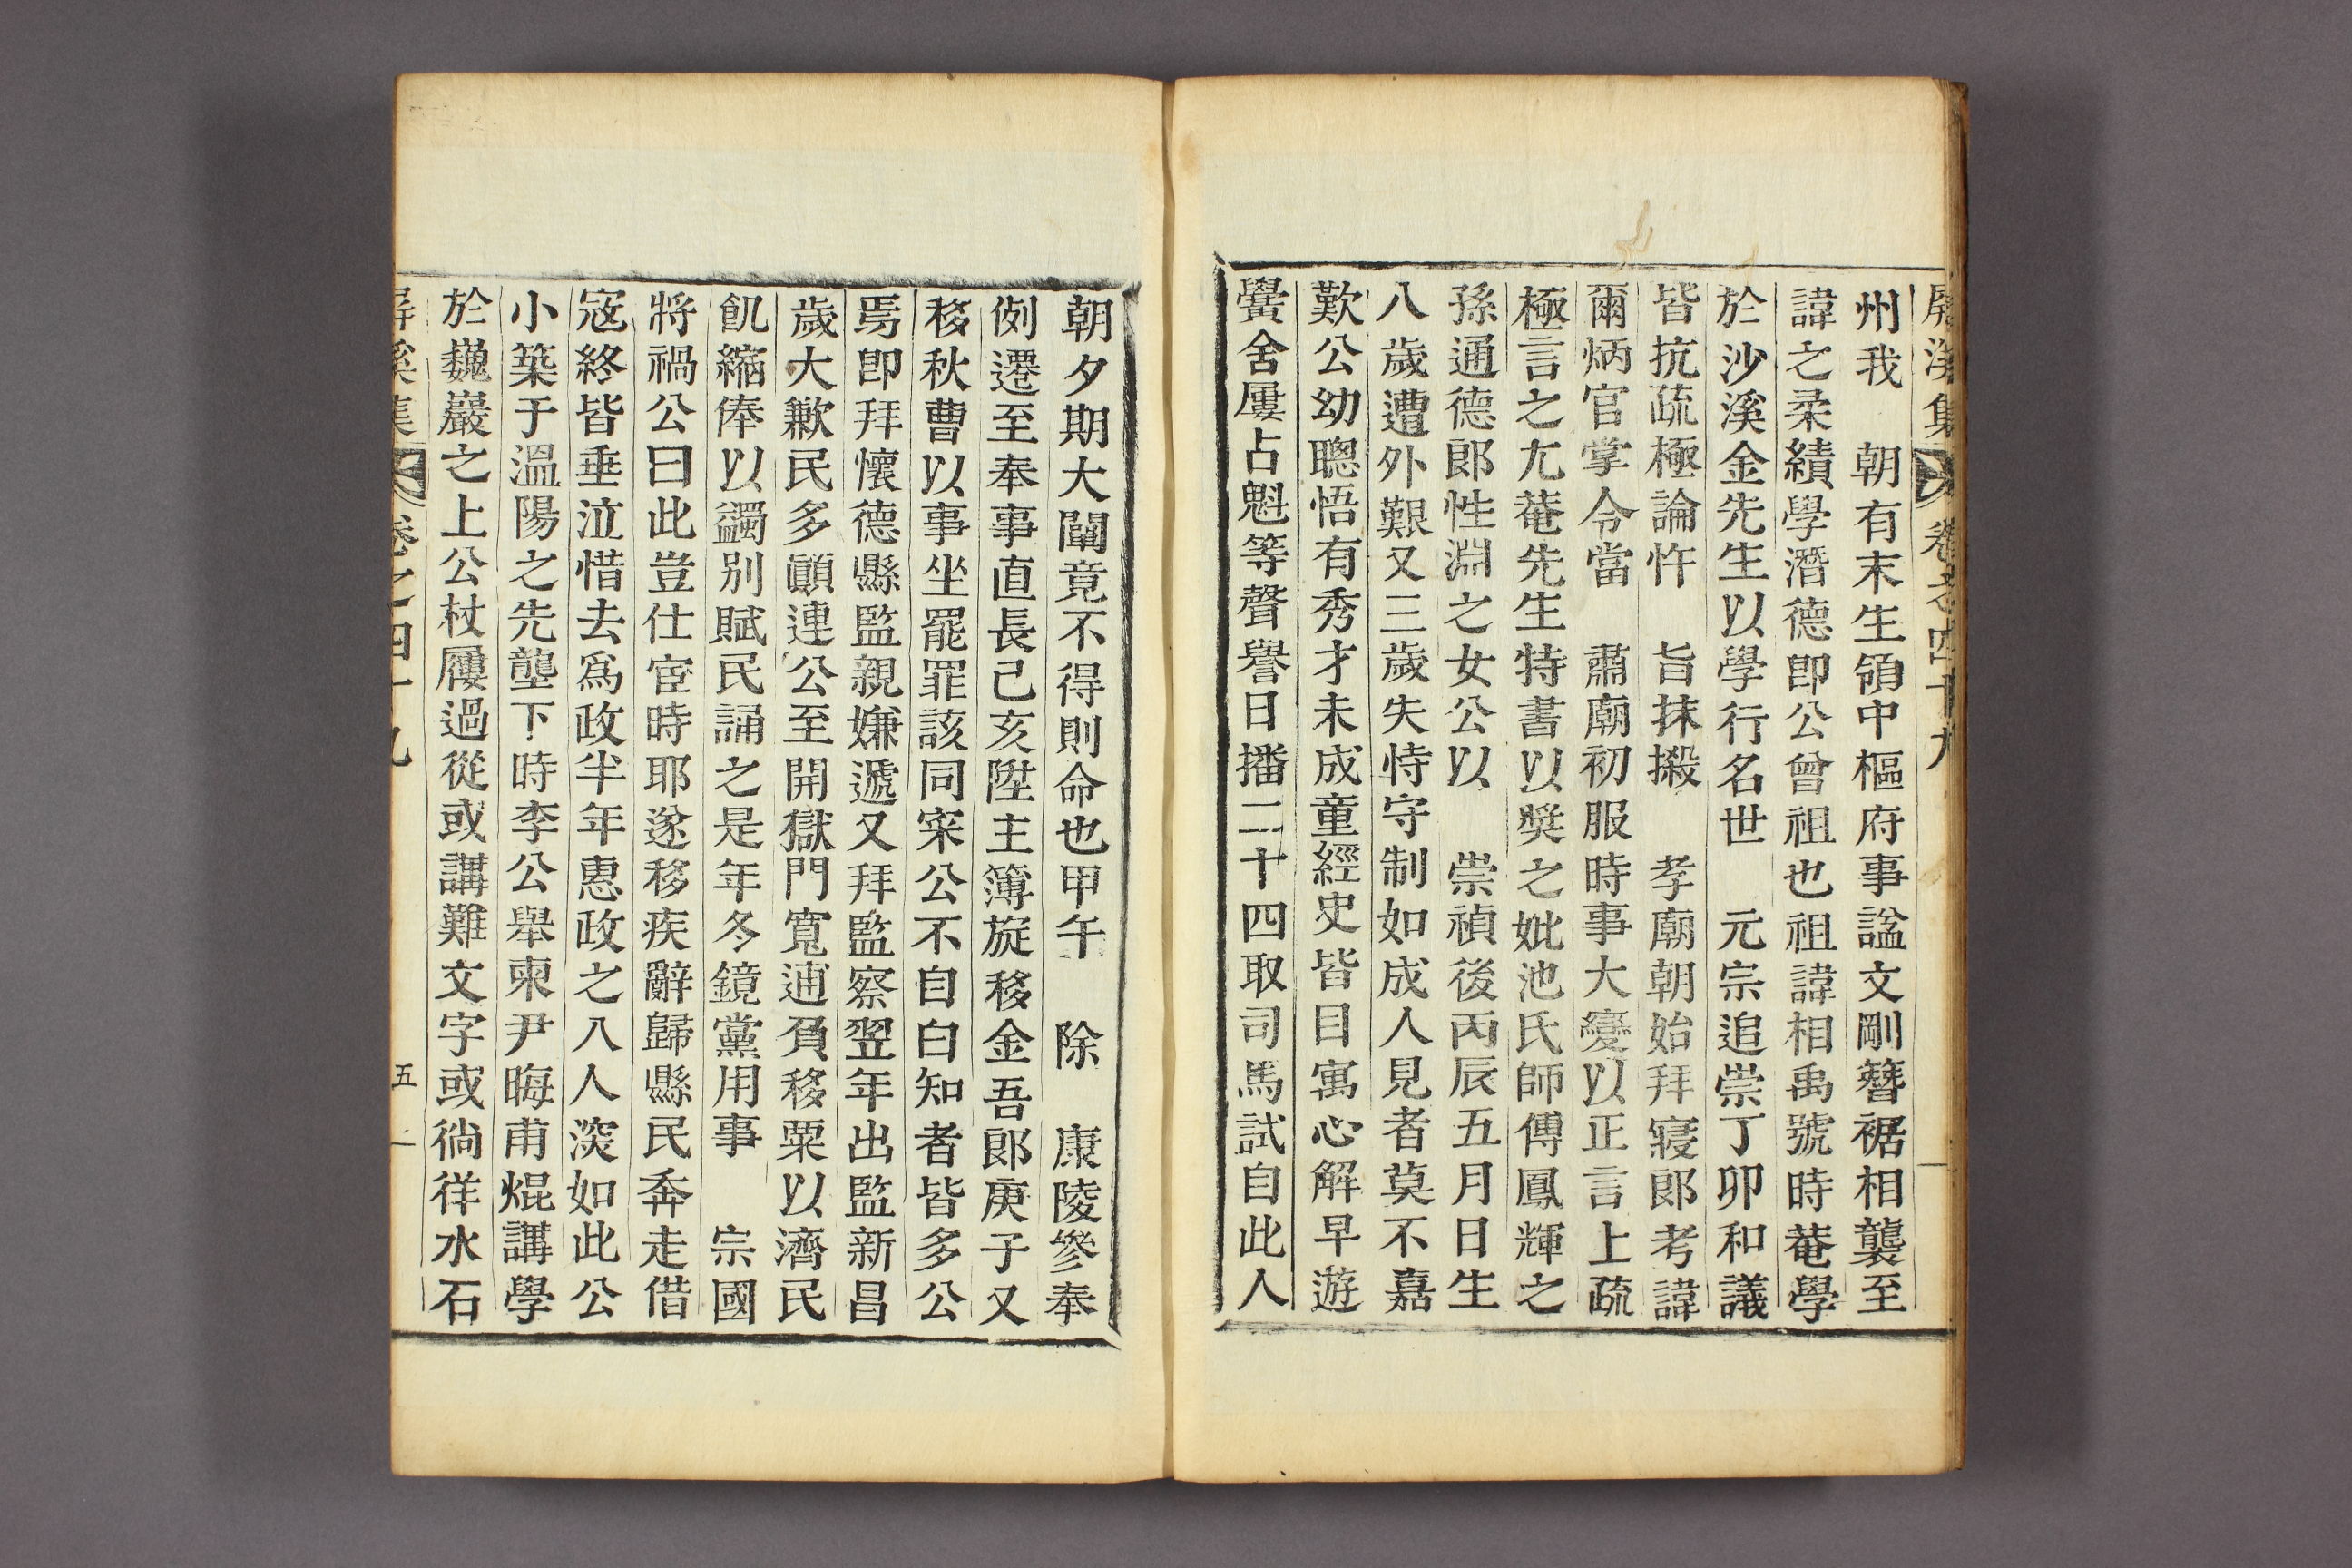 屛溪集 卷之四十九
州我 朝有末生領中樞府事諡文剛簪裾相襲至
諱之柔績學潛德卽公曾祖也祖諱相禹號時菴學
於沙溪金先生以學行名世 元宗追崇丁卯和議
皆抗疏極論忤 旨抹摋 孝廟朝始拜寢郞考諱
爾炳官掌令當 肅廟初服時事大變以正言上疏
極言之尤菴先生特書以奬之妣池氏師傅鳳輝之
孫通德郞性淵之女公以 崇禎後丙辰五月日生
八歲遭外艱又三歲失恃守制如成人見者莫不嘉
歎公幼聰悟有秀才未成童經史皆目寓心解早遊
黌舍屢占魁等聲譽日播二十四取司馬試自此人
朝夕期大闡竟不得則命也甲午 除 康陵參奉
例遷至奉事直長己亥陞主簿旋移金吾郞庚子又
移秋曹以事坐罷罪該同宷公不自白知者皆多公
焉卽拜懷德縣監親嫌遞又拜監察翌年出監新昌
歲大歉民多顚連公至開獄門寬逋負移粟以濟民
飢縮俸以蠲別賦民誦之是年冬鏡黨用事 宗國
將禍公曰此豈仕宦時耶遂移疾辭歸縣民奔走借
寇終皆垂泣惜去爲政半年惠政之入人深如此公
小築于溫陽之先壟下時李公擧柬尹晦甫焜講學
於巍巖之上公杖屨過從或講難文字或徜徉水石
屛溪集 卷之四十九 五